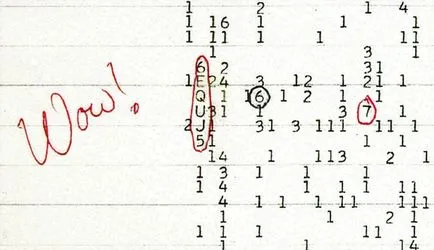 1 2 1 4
1 16 1 1 1
1 11 1 1 11
1 3 1
6 2 31
1 E24 3 12 1 21 1
Q 1 16 1 2 1 1
U31 1 3 7
Wow!
2J1 31 3 111 11 1
51 1 1
14 1 113 2 1
1 3 1 1
1 4 1 1 111
4 1 1 1 1 11 111
1 2 1
1 1 11 1
1 1 14